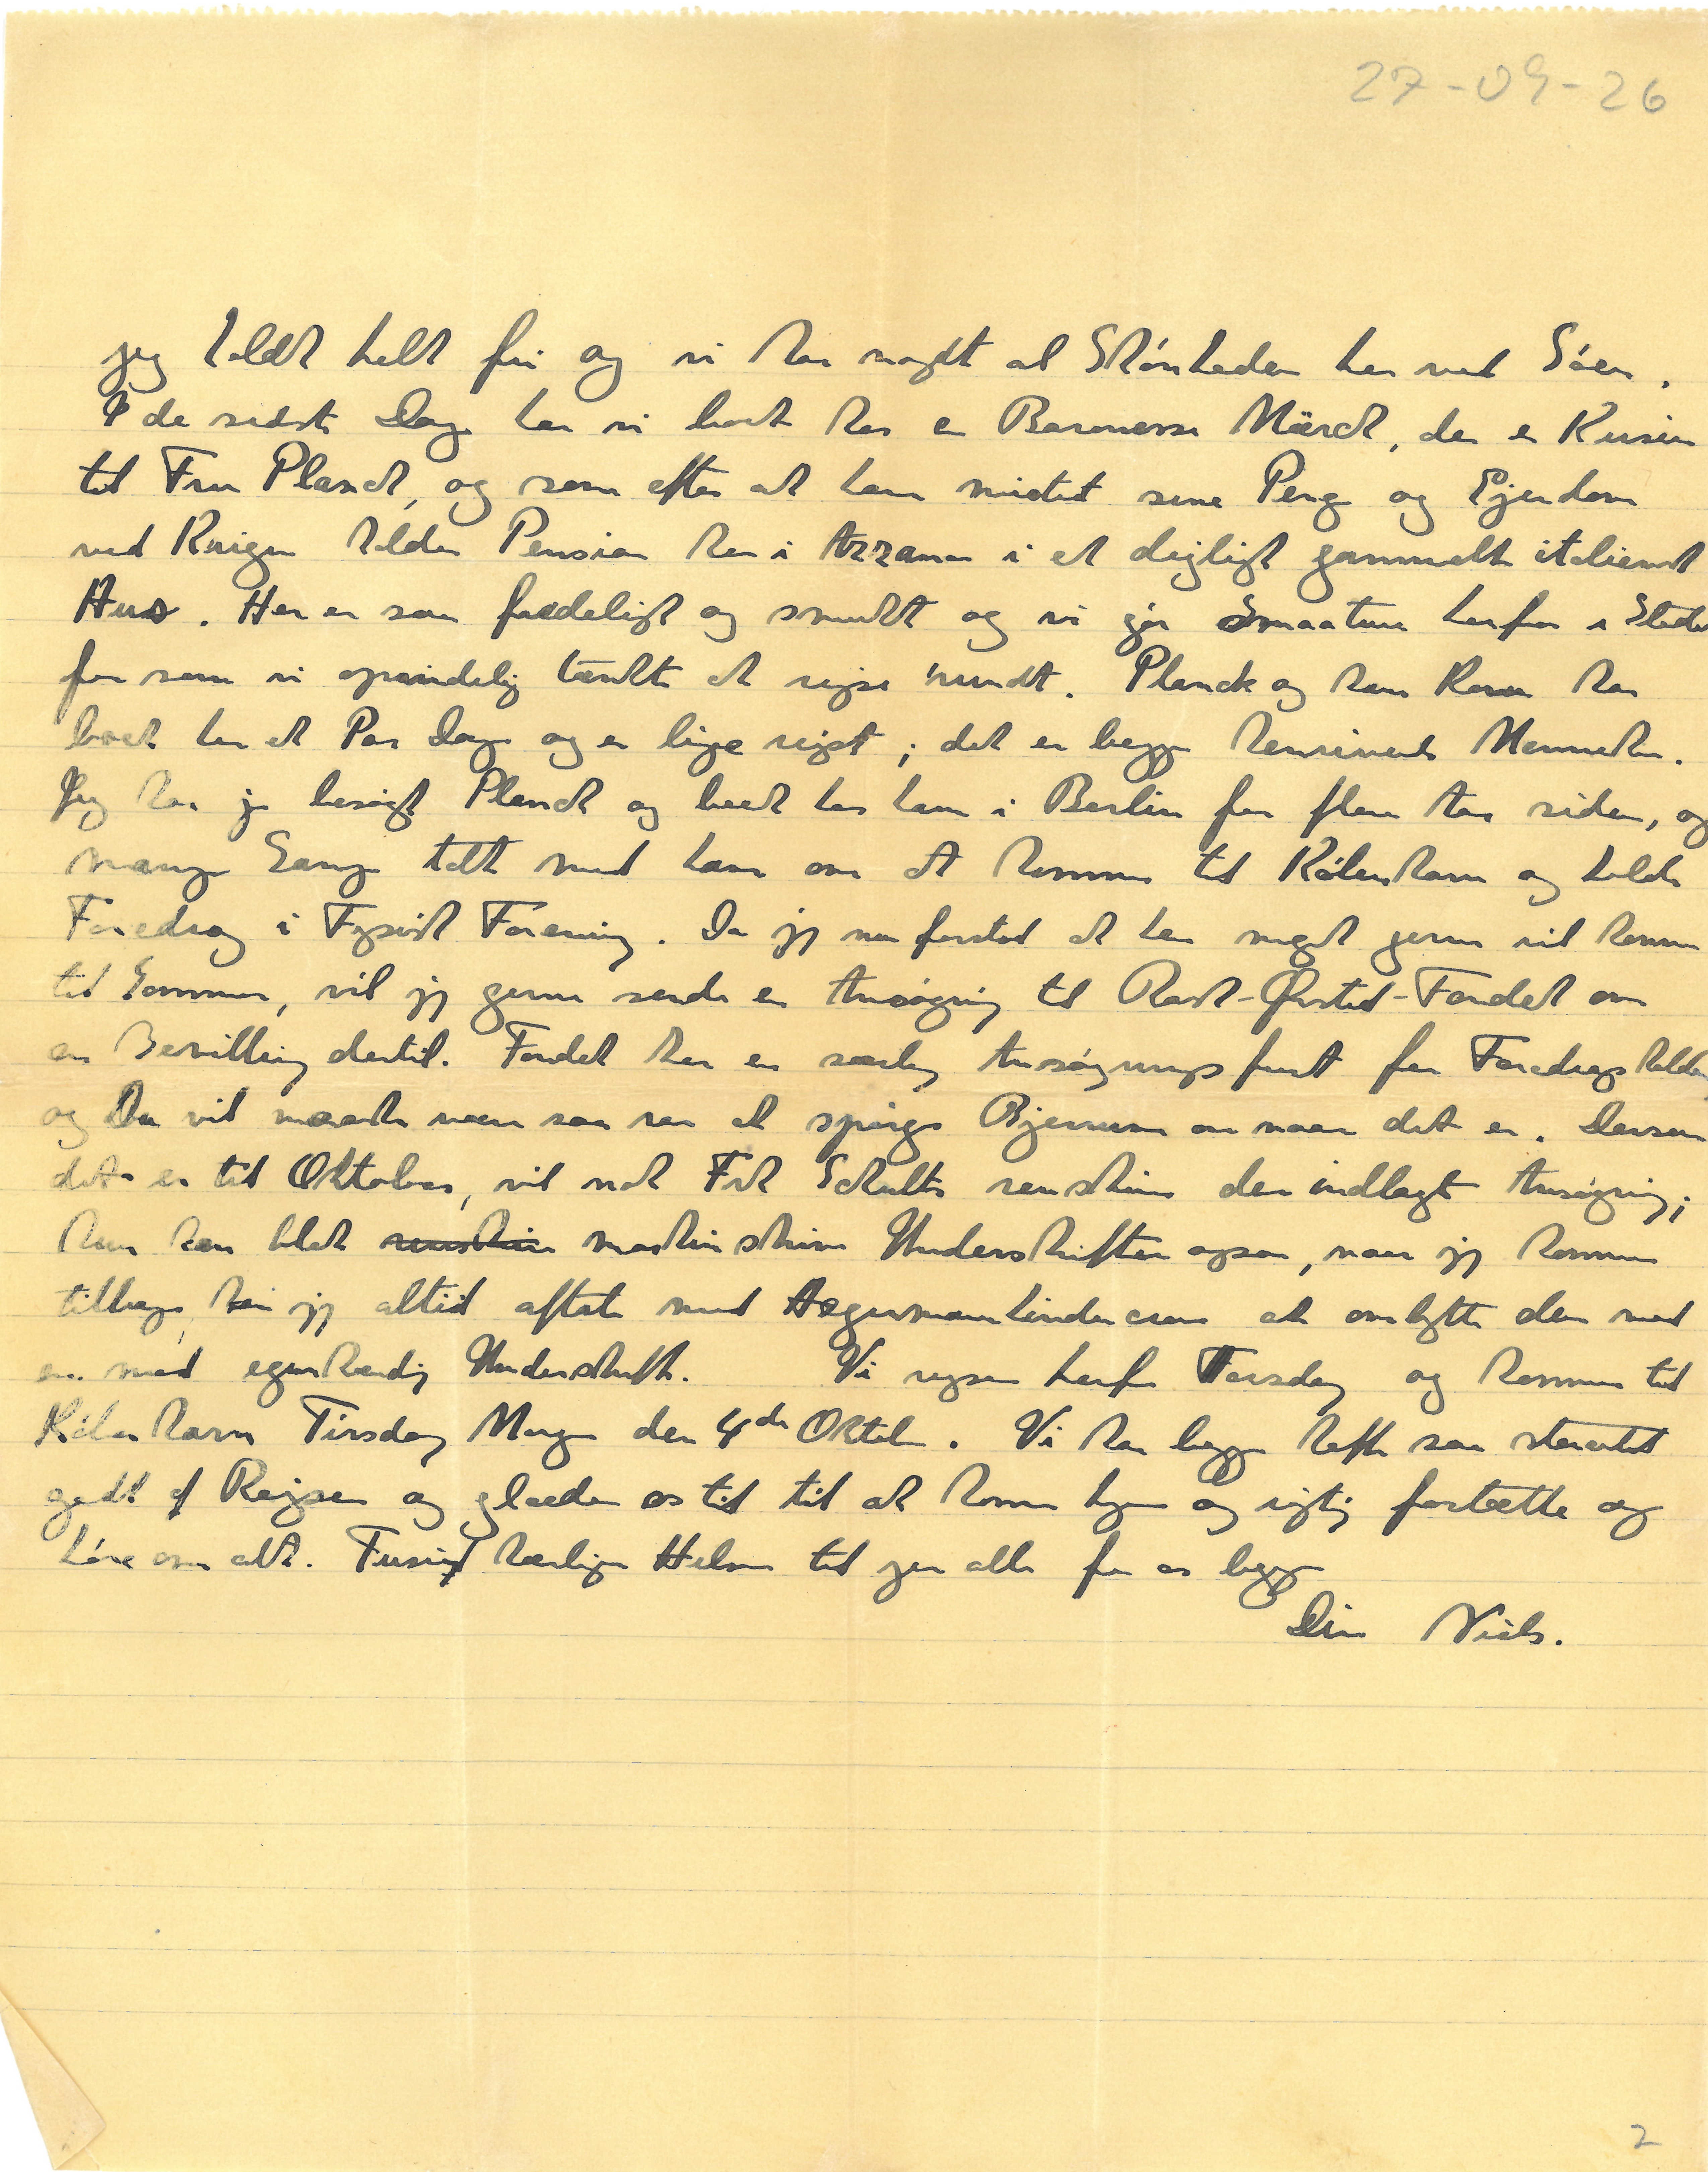 27-09-26
jeg holdt helt fri og vi har nydt al Skønheden her ved Søen.
I de sidste Dage har vi boet hos en Baronesse Märck, der er Kusine
til Fru Planck, og som efter at have mistet sine Penge og Ejendom
ved Krigen holder Pension her i Azzano i et dejligt gammelt italiensk
Hus. Her er saa fredeligt og smukt og vi gør Smaature herfra i Stedet
for som vi oprindelig tænkte at rejse rundt. Planck og hans Kone har
boet her et Par Dage og er lige rejst; det er begge henrivende Mennesker.
Jeg har jo besøgt Planck og boet hos ham i Berlin for flere Aar siden, og
mange Gange talt med ham om at komme til København og holde
Foredrag i Fysisk Forening. Da jeg nu forstod at han meget gerne vil komme
til Sommer, vil jeg gerne sende en Ansøgning til Rask-Ørsted-Fondet om
en Bevilling dertil. Fondet har en særlig Ansøgningsfrist for Foredragsholdere
og Du vil maaske være saa rar at spørge Bjerrum om naar det er. Dersom
det er til Oktober, vil nok Frk Schultz renskrive den indlagte Ansøgning;
hun kan blot renskrive maskinskrive Underskriften ogsaa, naar jeg kommer
tilbage, kan jeg altid aftale med at ombytte den med
en med egenhændig Underskrift. Vi rejser herfra Torsdag og kommer til
København Tirsdag Morgen den 4de Oktober. Vi har begge haft saa storartet
godt af Rejsen og glæder os til til at komme hjem og rigtig fortælle og
høre om alt. Tusind kærlige Hilsner til jer alle fra os begge
Din Niels.
2